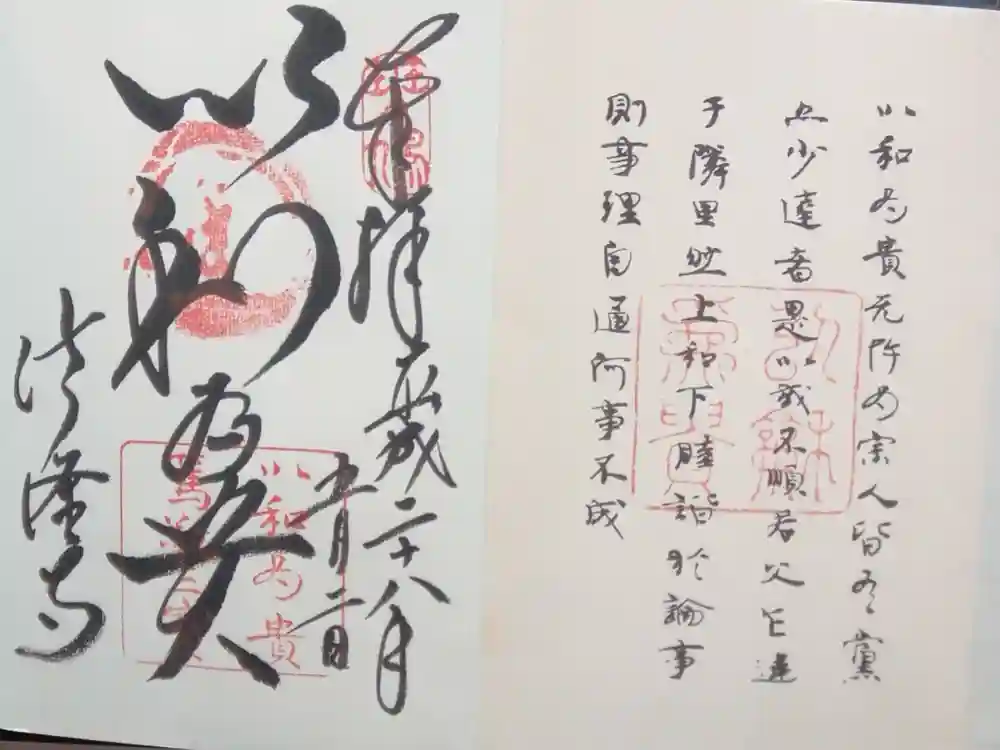 以和為貴无忤為宗人皆有黨
亦少達者是以或不順君父乍違
于隣里然上和下睦諧於論事
則事理自通何事不成
奉拝 平成二十八年
五月二日
以和為貴
法隆寺
以和為貴
篤